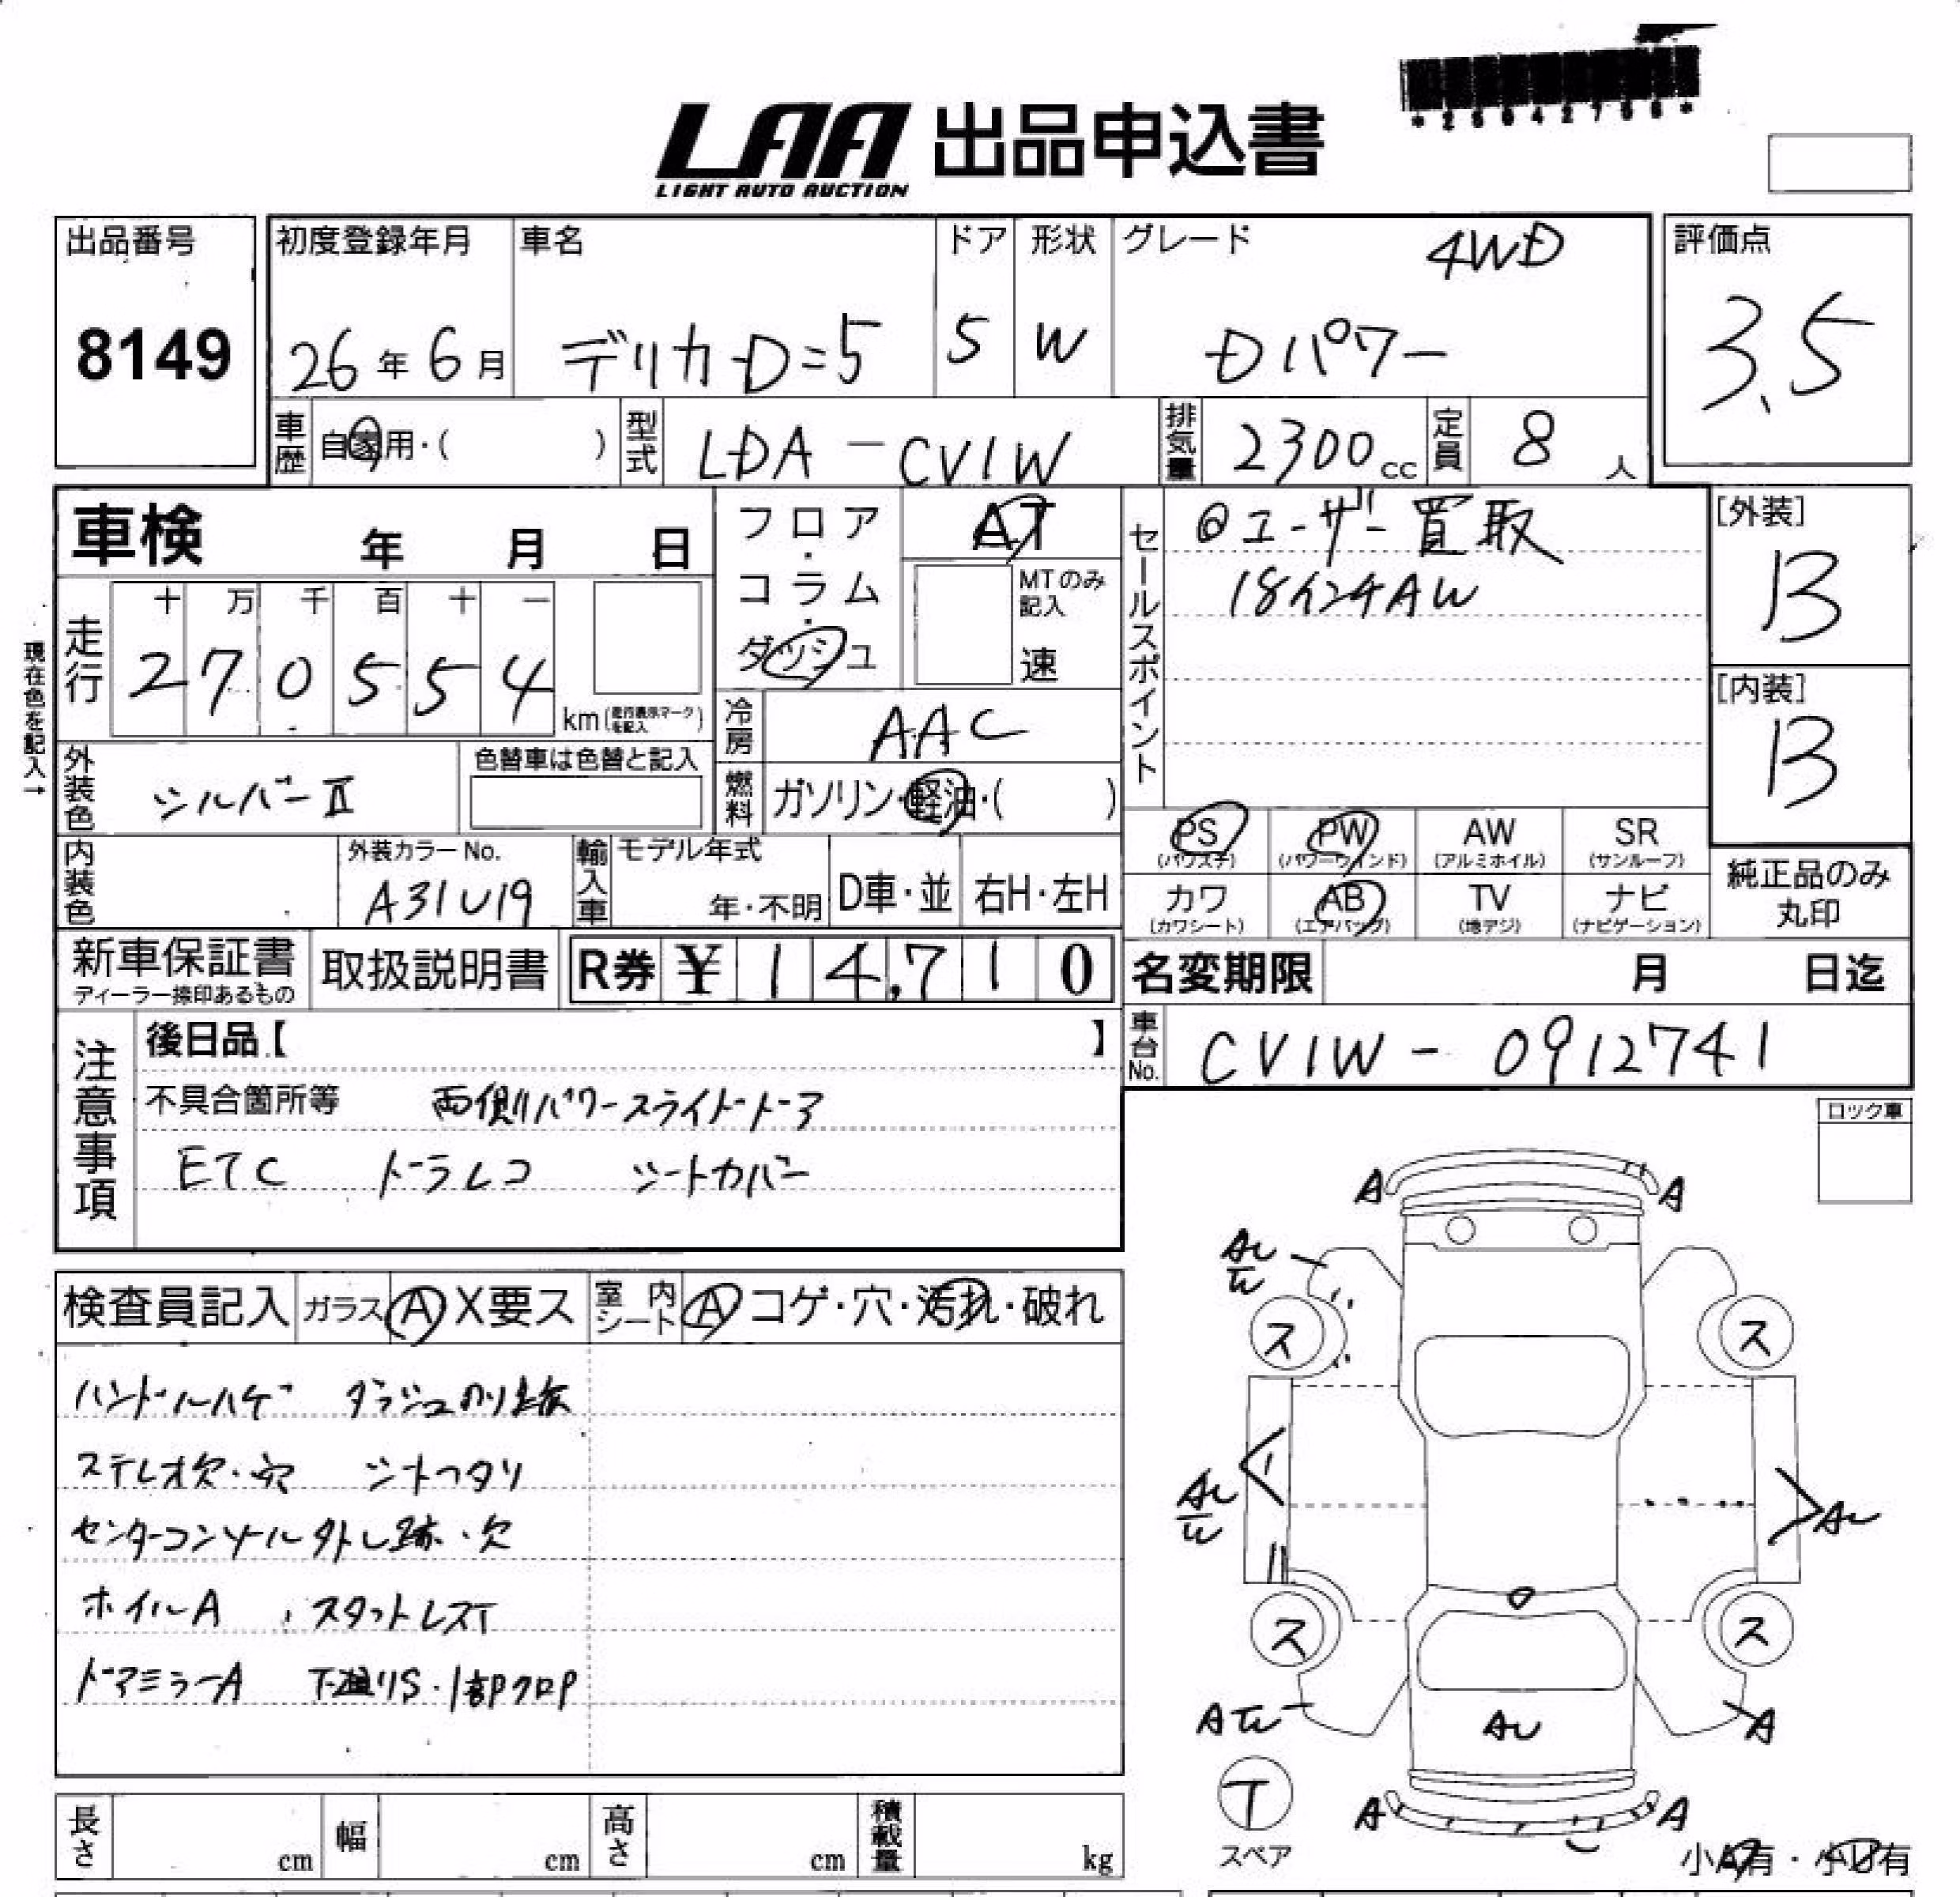 *25042756*
LAA 出品申込書
LIGHT AUTO AUCTION
出品番号 8149
初度登録年月 26年6月
車名 デリカD=5
ドア 5
形状 W
グレード 4WD
Dパワー
評価点 3.5
車歴 自家用・( )
型式 LDA-CV1W
排気量 2300cc
定員 8人
車検 年 月 日
フロア・コラム・ダッシュ
AT
MTのみ記入
速
セールスポイント
◎ユーザー買取
18インチAW
[外装] B
[内装] B
現在色を記入→
走行 十 万 千 百 十 一
2 7 0 5 5 4 km(走行表示マークを記入)
冷房 AAC
外装色 シルバーⅡ
色替車は色替と記入
燃料 ガソリン・軽油・( )
PS (パワステ) PW (パワーウインド) AW (アルミホイル) SR (サンルーフ)
カワ (カワシート) AB (エアバッグ) TV (地デジ) ナビ (ナビゲーション)
純正品のみ丸印
内装色
外装カラーNo. A31U19
輸入車 モデル年式 年・不明 D車・並 右H・左H
新車保証書 ディーラー捺印あるもの
取扱説明書
R券 ¥ 14,710
名変期限 月 日迄
車台No. CV1W-0912741
注意事項
後日品【 】
不具合箇所等 両側パワースライドドア
ETC ドラレコ シートカバー
ロック車
検査員記入 ガラス A X要ス 室内シート A コゲ・穴・汚れ・破れ
ハンドルハゲ ダッシュのり跡
ステレオ欠・穴 シートヘタリ
センターコンソール外し跡・欠
ホイルA スタットレスT
ドアミラーA 下廻りS・1部Pクロp
A A
AU
ス ス
AU AU
ス ス
A A
AU
T
スペア
A A
小A有・小U有
長さ cm 幅 cm 高さ cm 積載量 kg